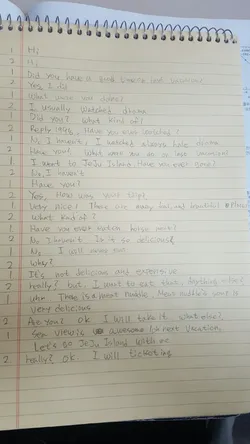 1 Hi
2 Hi
1 Did you have a good time in last vacation?
2 Yes, I do
1 What have you done?
2 I usually watched drama
1 Did you? What kind of?
2 Reply 1998, Have you ever watched?
1 No, I haven't, I watched always hole drama
2 Have you? What were you do on last vacation?
1 I went to JeJu Island, Have you ever gone?
2 No, I haven't
1 Have you?
2 Yes, How was your trip?
1 Very nice! There are many fun and beautiful
2 What kind of?
1 Have you ever eaten horse meat?
2 No I haven't. Is it so delicious?
1 No. I will never eat
2 Why?
1 It's not delicious and expensive
2 Really? but, I want to eat that. Anything else?
1 Um.. There is a meat noodle. Meat noodle's soup is
very delicious
2 Are you? Ok I will take it. What else?
1 Sea view is awesome. On next vacation
Let's go JeJu Island with me
2 Really? Ok. I will ticketing